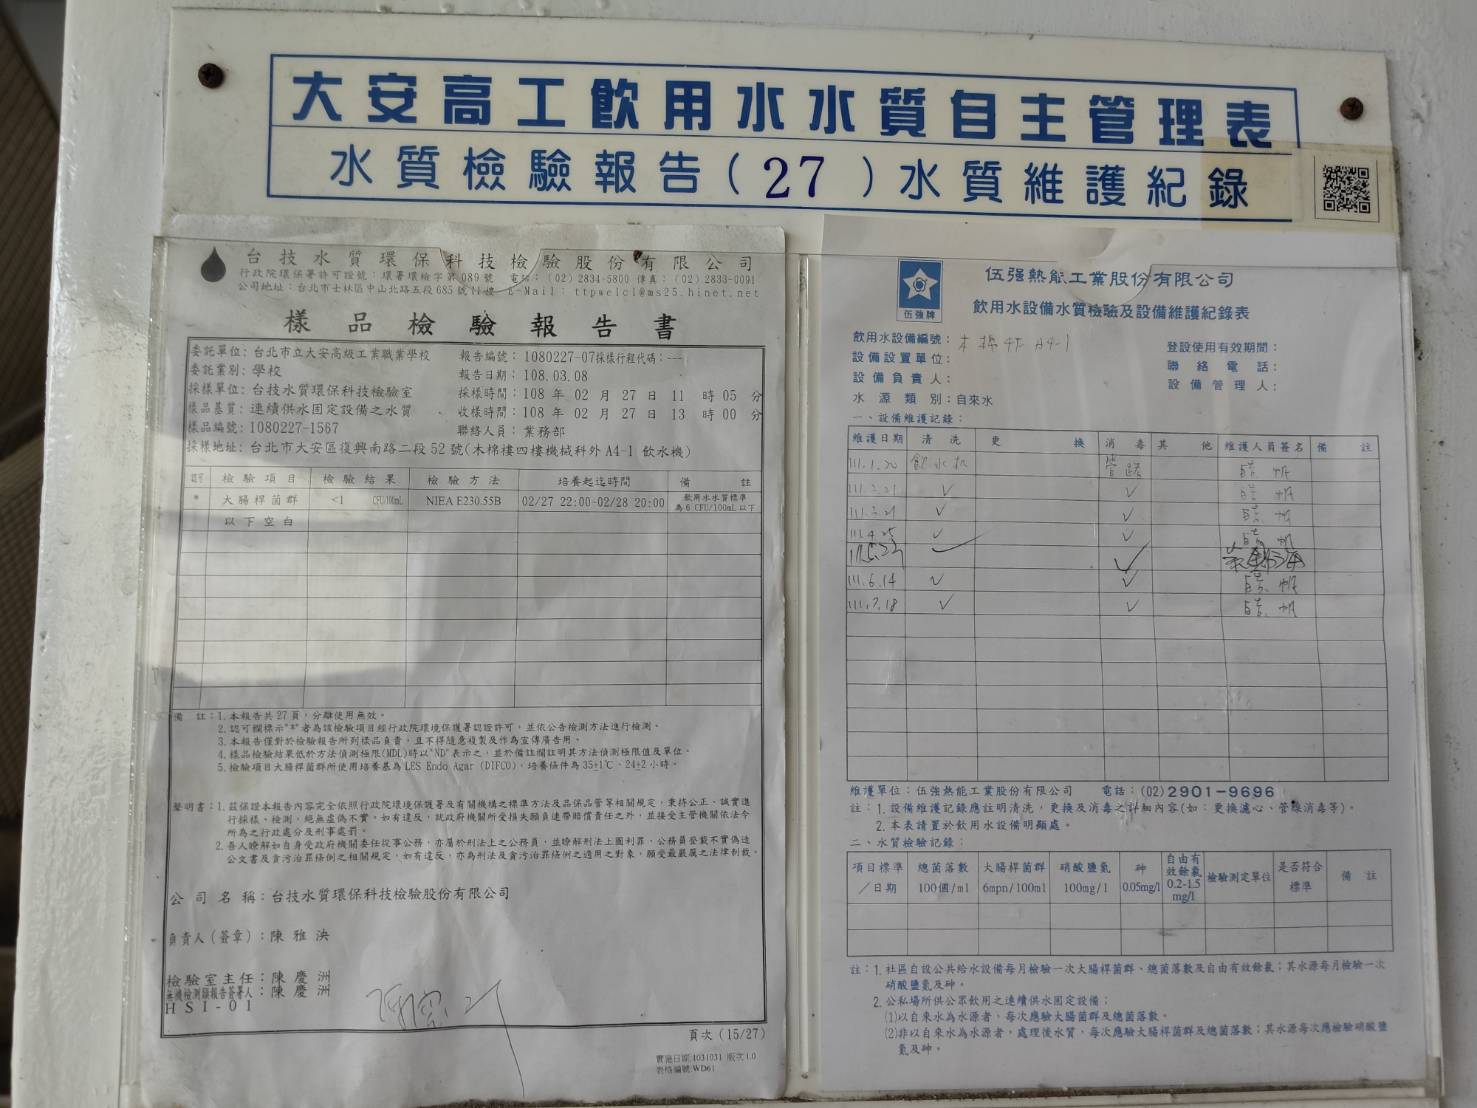 大安高工飲用水水質自主管理表
水質檢驗報告(27)水質維護紀錄
台技水質環保科技檢驗股份有限公司
行政院環保署許可證號:環署環檢字第089號 電話:(02)2834-5800 傳真:(02)2833-0091
公司地址:台北市士林區中山北路五段685號11樓 E-Mail: ttpwelcl@ms25.hinet.net
樣品檢驗報告書
委託單位:台北市立大安高級工業職業學校 報告編號:1080227-07採樣行程代碼:---
委託業別:學校 報告日期:108.03.08
採樣單位:台技水質環保科技檢驗室 採樣時間:108 年 02 月 27 日 11 時 05 分
樣品基質:連續供水固定設備之水質 收樣時間:108 年 02 月 27 日 13 時 00 分
樣品編號:1080227-1567 聯絡人員:業務部
採樣地址:台北市大安區復興南路二段52號(木棉樓四樓機械科外A4-1 飲水機)
檢驗項目 檢驗結果 檢驗方法 培養起迄時間 備註
* 大腸桿菌群 <1 CFU/100mL NIEA E230.55B 02/27 22:00-02/28 20:00 飲用水水質標準
為6 CFU/100mL以下
以下空白
備 註:1.本報告共27頁,分離使用無效。
2.認可欄標示"*"者為該檢驗項目經行政院環境保護署認證許可,並依公告檢測方法進行檢測。
3.本報告僅對於檢驗報告所列樣品負責,且不得隨意複製及作為宣傳廣告用。
4.樣品檢驗結果低於方法偵測極限(MDL)時以"ND"表示之,並於備註欄註明其方法偵測極限值及單位。
5.檢驗項目大腸桿菌群所使用培養基為LES Endo Agar (DIFCO)、培養條件為35±1℃、24±2小時。
聲明書:1.茲保證本報告內容完全依照行政院環境保護署及有關機構之標準方法及品保品管等相關規定,秉持公正、誠實進
行採樣、檢測。絕無虛偽不實,如有違反,就政府機關所受損失願負連帶賠償責任之外,並接受主管機關依法令
所為之行政處分及刑事處罰。
2.吾人瞭解如自身受政府機關委任從事公務,亦屬於刑法上之公務員,並瞭解刑法上圖利罪、公務員登載不實偽造
公文書及貪污治罪條例之相關規定,如有違反,亦為刑法及貪污治罪條例之適用之對象,願受最嚴厲之法律制裁。
公司名稱:台技水質環保科技檢驗股份有限公司
負責人(簽章):陳雅泱
檢驗室主任:陳慶洲
無機檢測類報告簽署人:陳慶洲
HSI-01
頁次(15/27)
實施日期:1031031 版次1.0
表格編號:WD61
伍強牌
伍强熱能工業股份有限公司
飲用水設備水質檢驗及設備維護紀錄表
飲用水設備編號:木棉4F A4-1 登設使用有效期間:
設備設置單位: 聯絡電話:
設備負責人: 設備管理人:
水源類別:自來水
一、設備維護記錄:
維護日期 清洗 更換 消毒 其他 維護人員簽名 備註
111.1.20 飲水機 管路
111.2.21 ✓ ✓
111.3.21 ✓ ✓
111.4.25 ✓ ✓
✓ ✓
111.6.14 ✓ ✓
111.7.18 ✓ ✓
維護單位:伍強熱能工業股份有限公司 電話:(02)2901-9696
註:1.設備維護記錄應註明清洗,更換及消毒之詳細內容(如:更換濾心、管線消毒等)。
2.本表請置於飲用水設備明顯處。
二、水質檢驗記錄:
項目標準/日期 總菌落數100個/ml 大腸桿菌群6mpn/100ml 硝酸鹽氮100mg/l 砷0.05mg/l 自由有效餘氯0.2-1.5mg/l 檢驗測定單位 是否符合標準 備註
註:1.社區自設公共給水設備每月檢驗一次大腸桿菌群、總菌落數及自由有效餘氯;其水源每月檢驗一次
硝酸鹽氮及砷。
2.公私場所供公眾飲用之連續供水固定設備:
(1)以自來水為水源者,每次應驗大腸菌群及總菌落數。
(2)非以自來水為水源者,處理後水質,每次應驗大腸桿菌群及總菌落數;其水源每次應檢驗硝酸鹽
氮及砷。